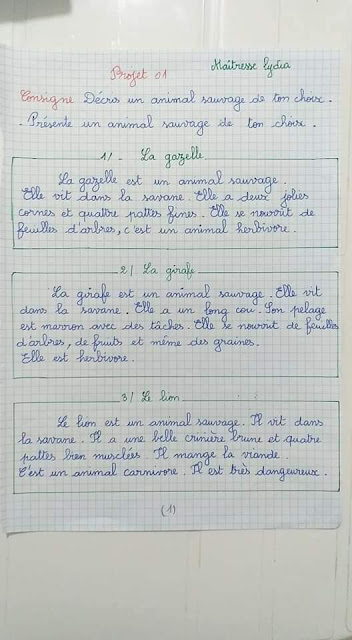 Maîtresse Lydia
Projet 01
Consigne Décris un animal sauvage de ton choix.
. Présente un animal sauvage de ton choix.
1/ - La gazelle
La gazelle est un animal sauvage.
Elle vit dans la savane. Elle a deux jolies
cornes et quatre pattes fines. Elle se nourrit de
feuilles d'arbres, c'est un animal herbivore.
2/ La girafe
La girafe est un animal sauvage. Elle vit
dans la savane. Elle a un long cou. Son pelage
est marron avec des tâches. Elle se nourrit de feuilles
d'arbres, de fruits et même des graines.
Elle est herbivore.
3/ Le lion
Le lion est un animal sauvage. Il vit dans
la savane. Il a une belle crinière brune et quatre
pattes bien musclées. Il mange la viande.
C'est un animal carnivore. Il est très dangeureux.
(1)